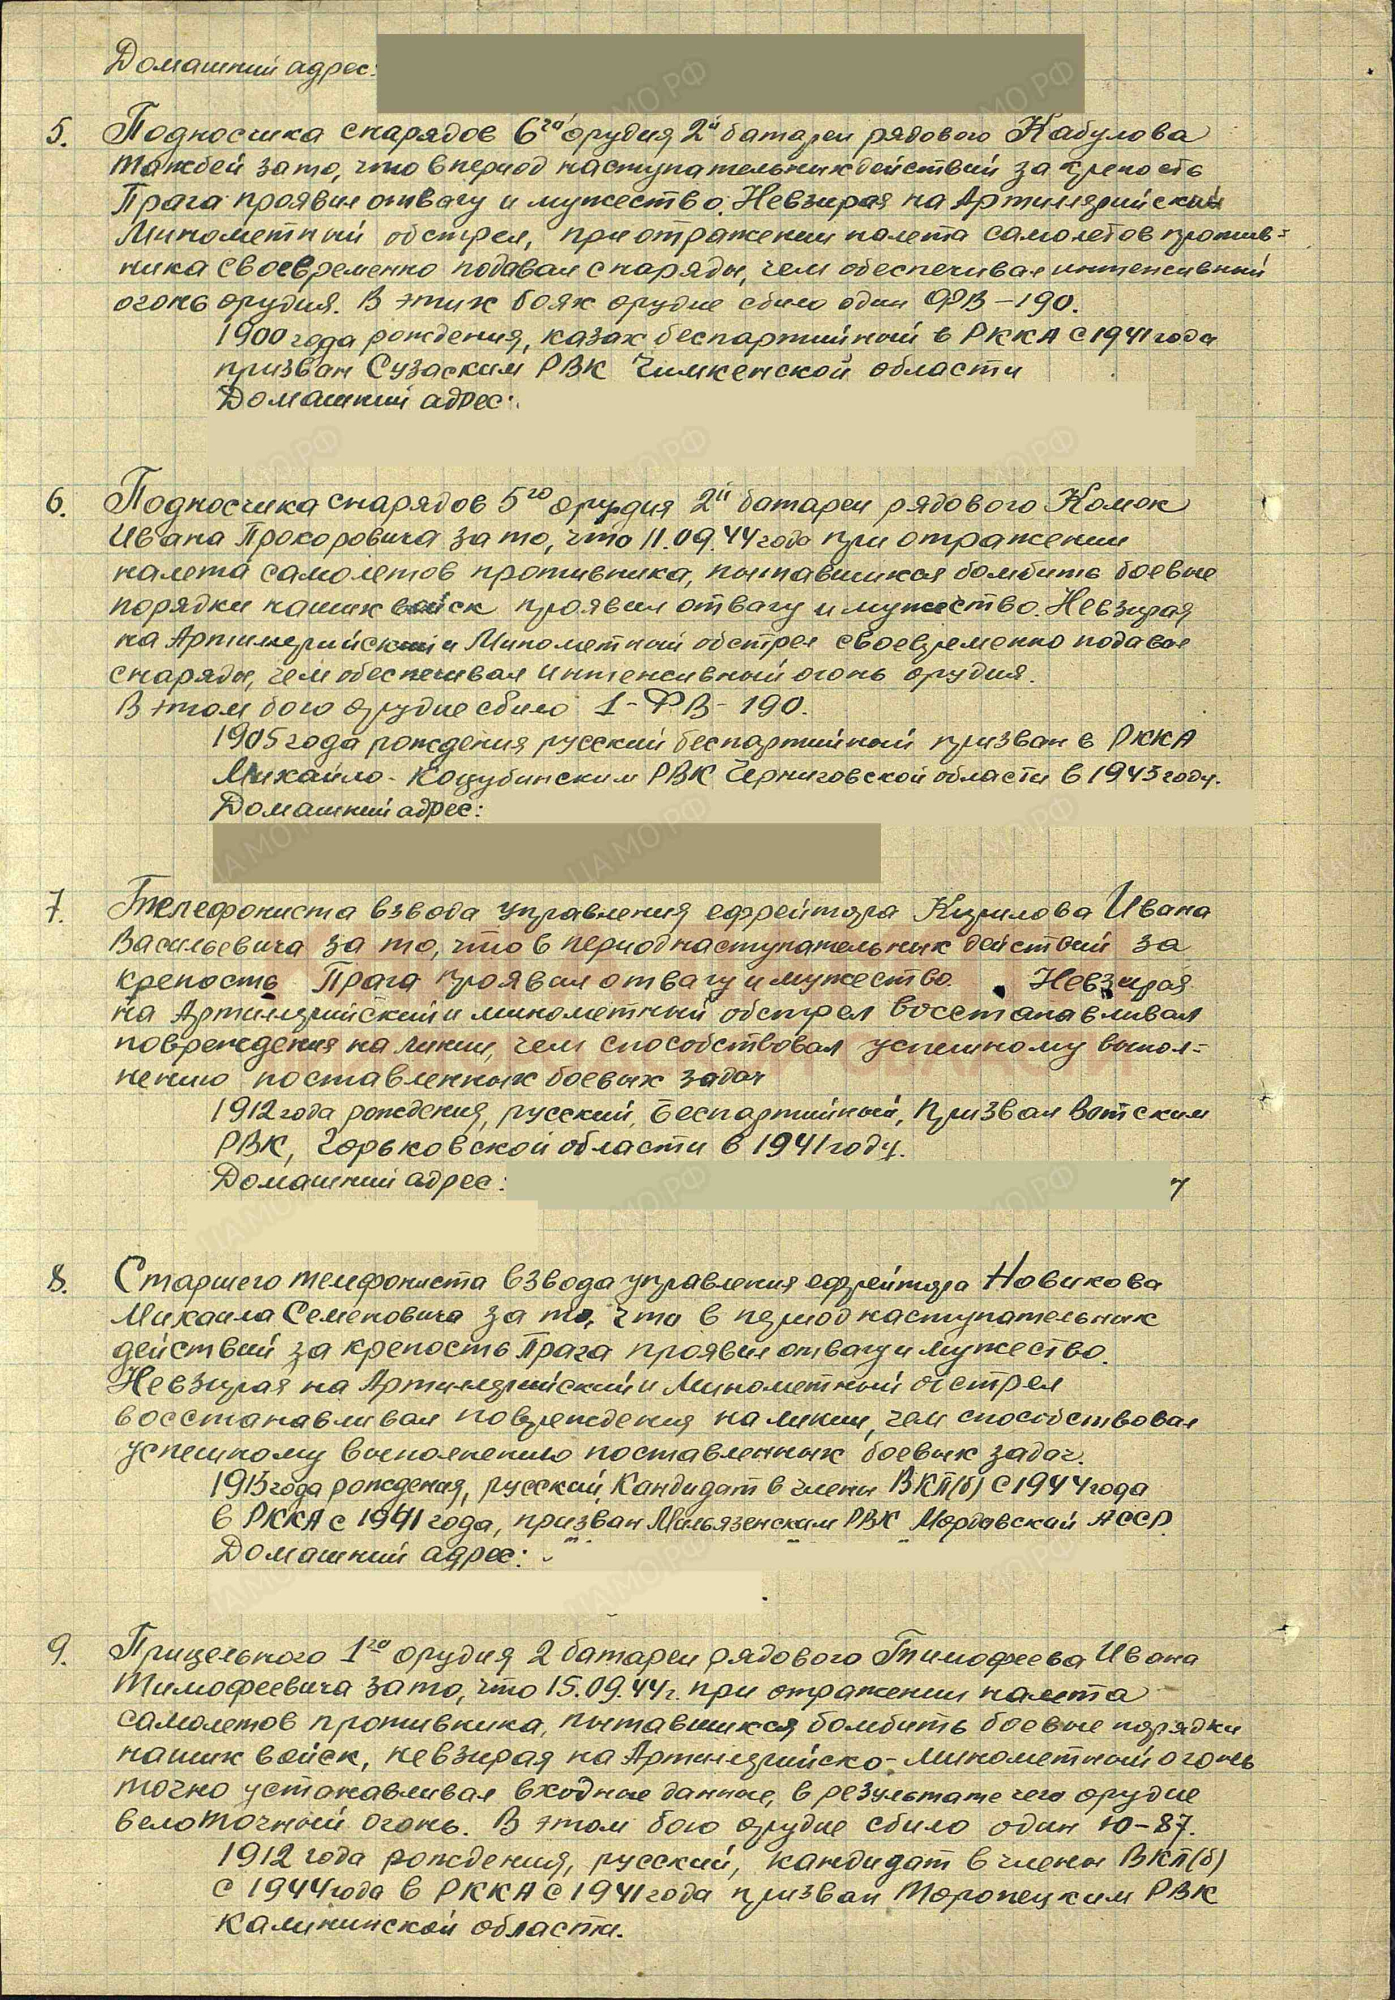 Домашний адрес:
5. Подносчика снарядов 6го орудия 2й батареи рядового Кабулова
Тажбей за то, что в период наступательных действий за крепость
Прага проявил отвагу и мужество. Невзирая на Артиллерийский
Минометный обстрел, при отражении налета самолетов против-
ника своевременно подавал снаряды, чем обеспечивал интенсивный
огонь орудия. В этих боях орудие сбило один ФВ-190.
1900 года рождения, казах беспартийный в РККА с 1941 года
призван Сузаским РВК Чимкенской области
Домашний адрес:
6. Подносчика снарядов 5го орудия 2й батареи рядового Комок
Ивана Прохоровича за то, что 11.09.44 года при отражении
налета самолетов противника, пытавшихся бомбить боевые
порядки наших войск проявил отвагу и мужество. Невзирая
на Артиллерийский и Минометный обстрел своевременно подавал
снаряды, чем обеспечивал интенсивный огонь орудия.
В этом бою орудие сбило 1-ФВ-190.
1905 года рождения русский беспартийный призван в РККА
Михайло-Коцубинским РВК Черниговской области в 1943 году.
Домашний адрес:
7. Телефониста взвода управления ефрейтора Кирилова Ивана
Васильевича за то, что в период наступательных действий за
крепость Прага проявил отвагу и мужество. Невзирая
на Артиллерийский и минометный обстрел восстанавливал
повреждения на линии, чем способствовал успешному выпол-
нению поставленных боевых задач
1912 года рождения, русский, беспартийный, призван Вотским
РВК, Горьковской области в 1941 году.
Домашний адрес:
8. Старшего телефониста взвода управления ефрейтора Новикова
Михаила Семеновича за то, что в период наступательных
действий за крепость Прага проявил отвагу и мужество.
Невзирая на Артиллерийский и Минометный обстрел
восстанавливал повреждения на линии, чем способствовал
успешному выполнению поставленных боевых задач.
1913 года рождения, русский, Кандидат в члены ВКП(б) с 1944 года
в РККА с 1941 года, призван РВК Мордавской АССР.
Домашний адрес:
9. Прицельного 1го орудия 2 батареи рядового Тимофеева Ивана
Тимофеевича за то, что 15.09.44г. при отражении налета
самолетов противника, пытавшихся бомбить боевые порядки
наших войск, невзирая на Артиллерийско-минометный огонь
точно устанавливал входные данные, в результате чего орудие
вело точный огонь. В этом бою орудие сбило один Ю-87.
1912 года рождения, русский, кандидат в члены ВКП(б)
с 1944 года в РККА с 1941 года призван Торопецким РВК
Калининской области.